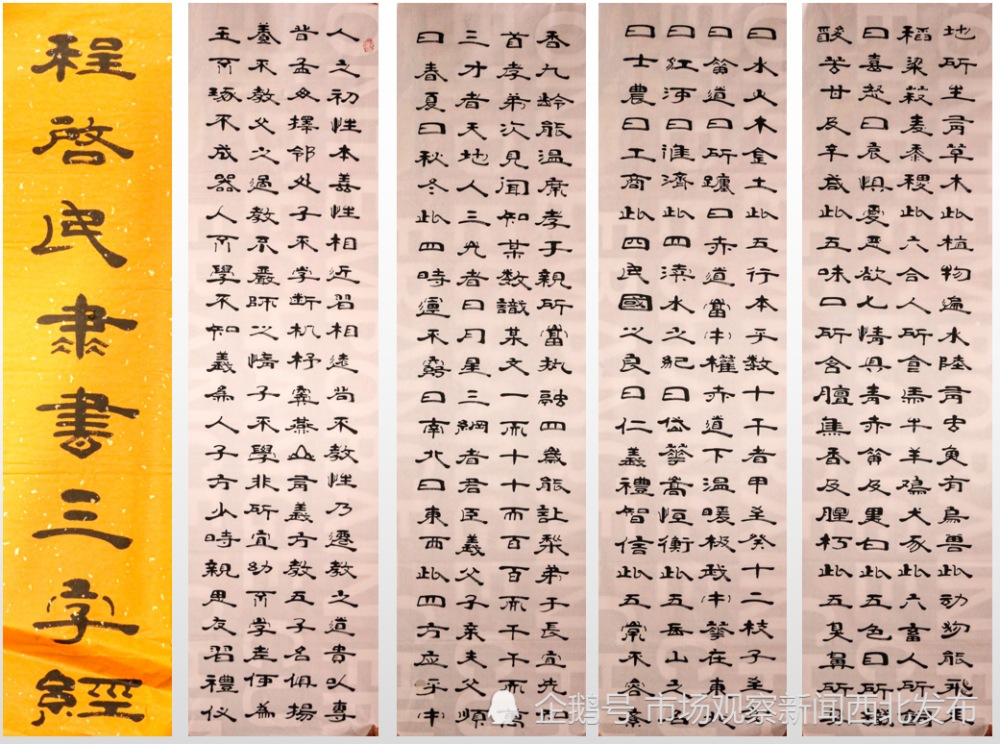 程啓民隶書三字經
人之初性本善性相近習相遠苟不教性乃遷教之道貴以專
昔孟母擇邻处子不学断机杼竇燕山有義方教五子名俱揚
養不教父之過教不嚴師之惰子不學非所宜幼不学老何為
玉不琢不成器人不學不知義為人子方少時親思友習禮仪
香九齡能温席孝于親所當执融四歲能让梨弟于長宜先知
首孝弟次見闻知某数識某文一而十十而百百而千千而萬
三才者天地人三光者日月星三綱者君臣義父子亲夫父順
曰春夏曰秋冬此四時運不窮曰南北曰東西此四方应乎中
曰水火木金土此五行本乎数十干者甲至癸十二枝子至亥
曰黄道曰所躔曰赤道當中權赤道下温暖极我中華在東北
曰江河曰淮濟此四瀆水之紀曰岱華嵩恒衡此五岳山之名
曰士農曰工商此四民國之良曰仁義禮智信此五常不容紊
地所生有草木此植物遍水陸有虫魚有鳥兽此动物能飛走
稻粱菽麦黍稷此六合人所食馬牛羊鸡犬豕此六畜人所飼
曰喜怒曰哀惧憂恶欲七情具青赤黄及黑白此五色目所識
酸苦甘及辛咸此五味口所含膻焦香及腥朽此五臭鼻所
企鹅号 市场观察新闻西北发布